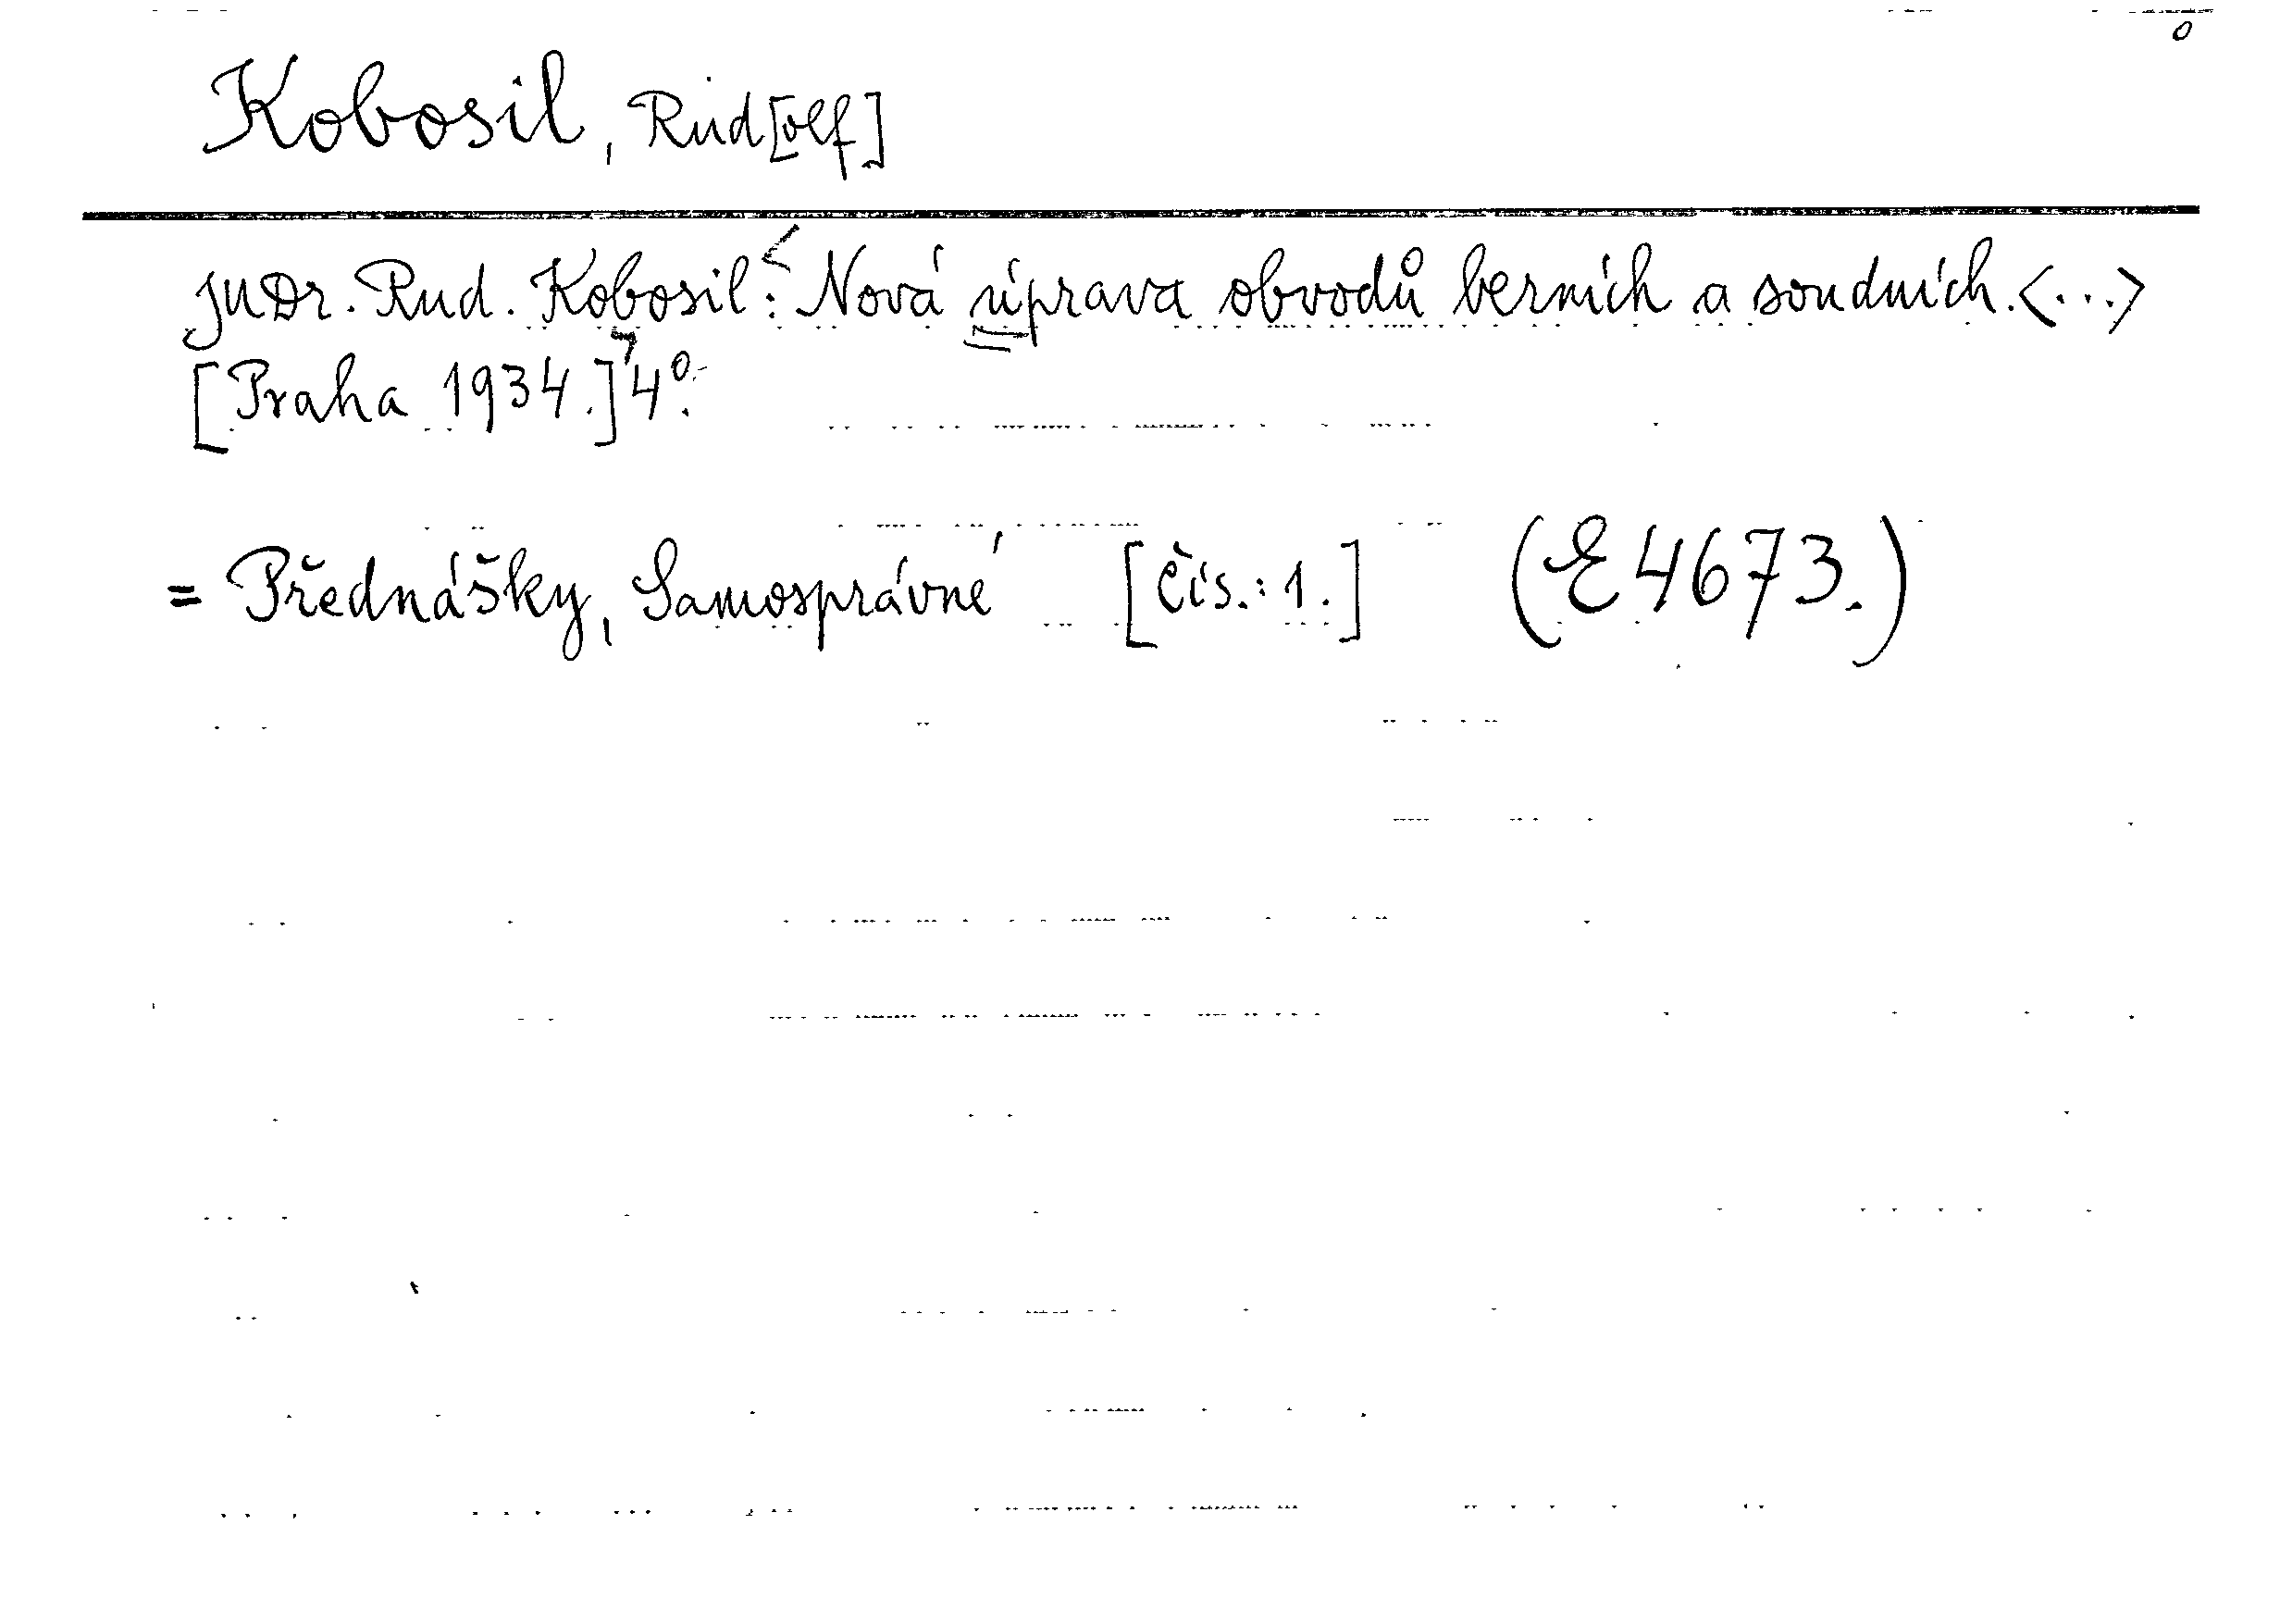 Kobosil, Rud[olf]
JUDr. Rud. Kobosil: Nová úprava obvodů berních a soudních. <...>
[Praha 1934.] 4°.
= Přednášky, Samosprávné [Čís.: 1.] (E 4673.)